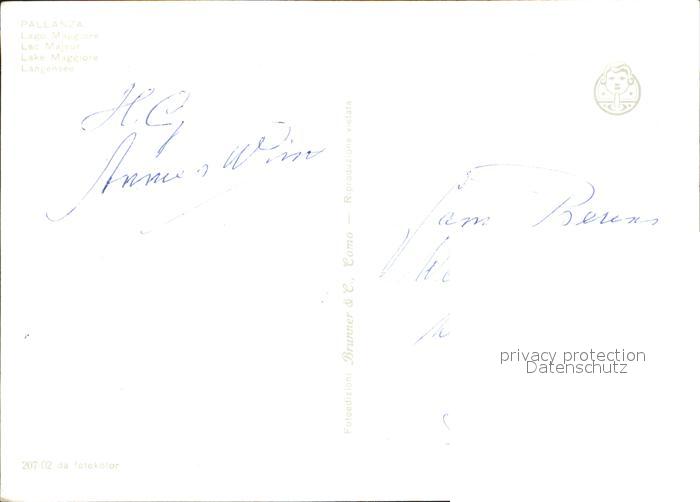 PALLANZA
Lago Maggiore
Lac Majeur
Lake Maggiore
Langensee
H.G
Annie Wim
Fotoedizioni Brunner & C., Como — Riproduzione vietata
Fam
privacy protection
Datenschutz
207/02 da fotokolor